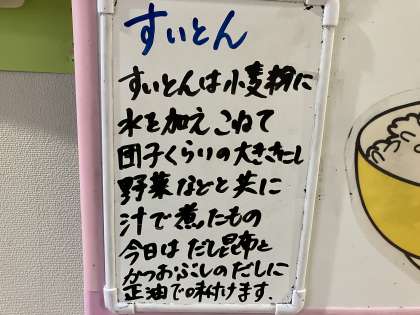 すいとん
すいとんは小麦粉に
水を加えこねて
団子くらいの大きさにし
野菜などと共に
汁で煮たもの
今日はだし昆布と
かつおぶしのだしに
正油で味付けます.